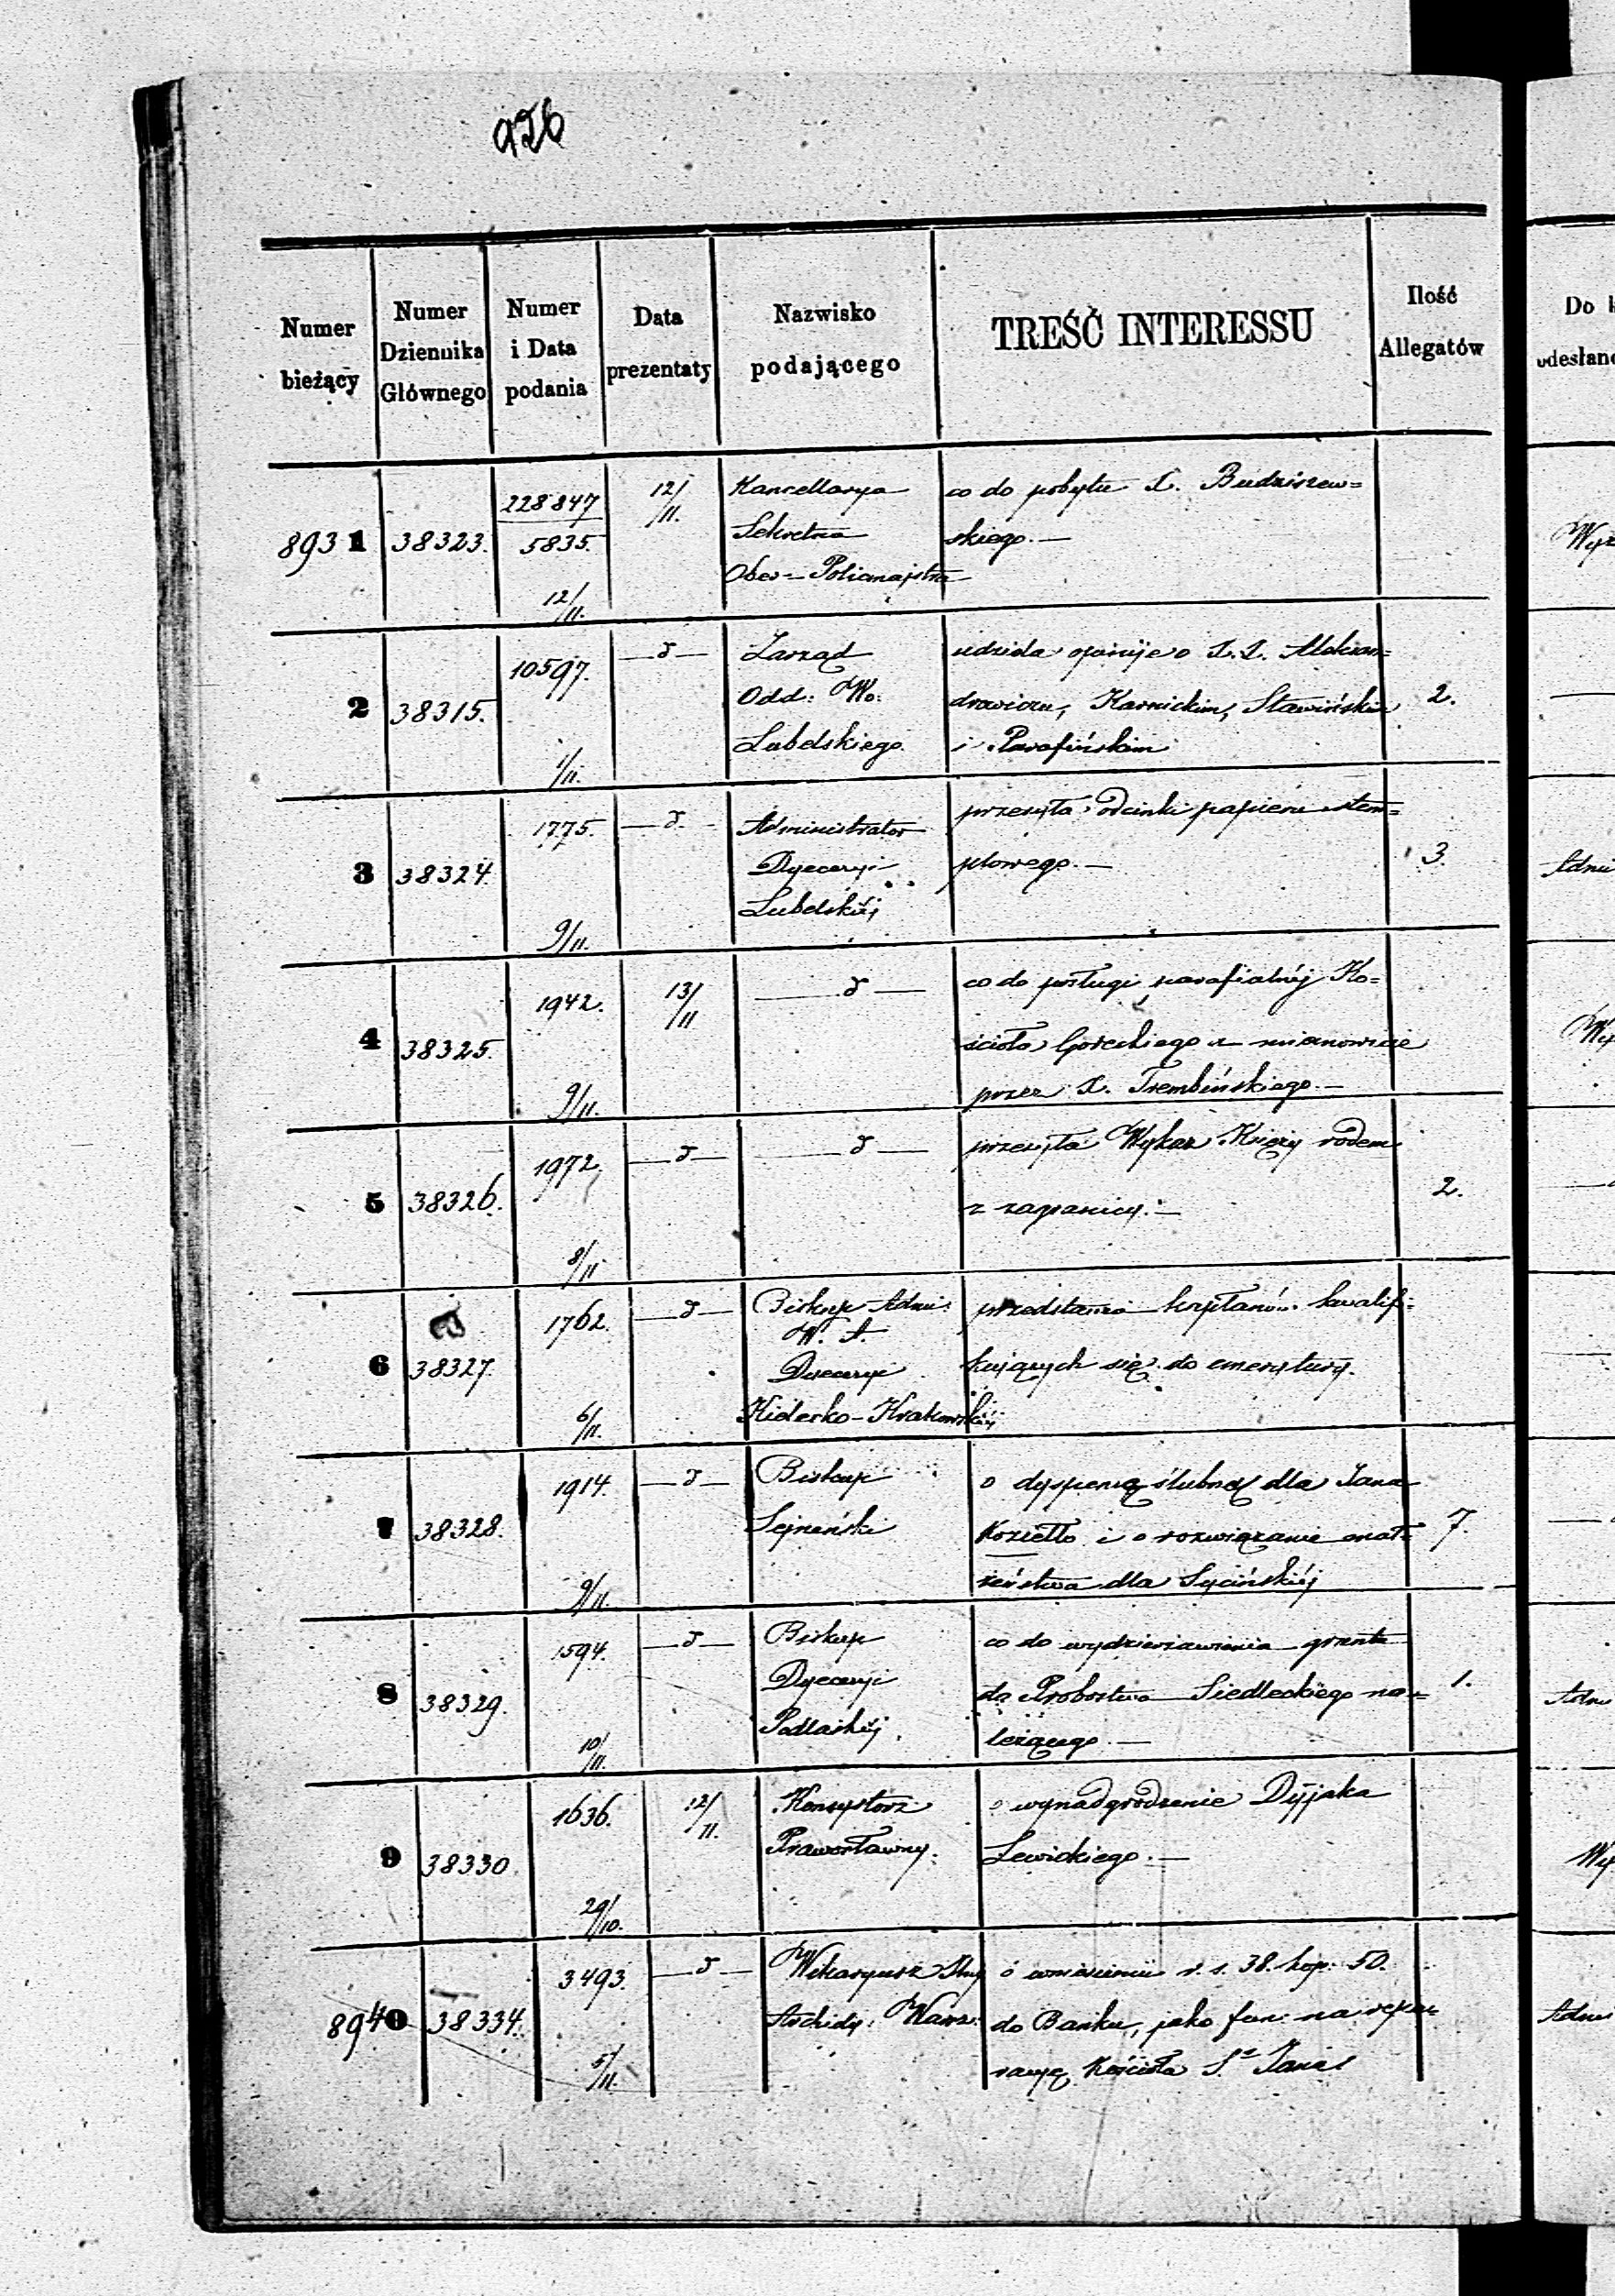 926
Numer bieżący
Numer Dziennika Głównego
Numer i Data podania
Data prezentaty
Nazwisko podającego
TREŚĆ INTERESSU
Ilość Allegatów
Do
odesłano
8931
38323.
228847
5835.
12/11.
12/11.
Kancellarya
Sekretna
Ober-Policmajstra
co do pobytu X. Budziszew=
skiego.—
2
38315.
10597.
1/11.
—d—
Zarząd
Odd: Wo:
Lubelskiego
udziela opinije o X.X. Aleksan=
drowiczu, Karnickim, Stawińskim
i Parafińskim
2.
3
38324.
1775.
9/11.
—d.—
Administrator
Dyecezyi
Lubelskiéj
przesyła odcinki papieru stem=
plowego.—
3.
4
38325.
1942.
9/11.
13/11
—d—
co do posługi parafialnéj Ko=
ścioła Goreckiego a mianowicie
przez X. Trembińskiego.—
5
38326.
1972.
8/11
—d—
—d—
przesyła Wykaz Księży rodem
z zagranicy.—
2.
6
38327.
1762.
6/11.
—d—
Biskup Admi:
W. A.
Dyecezyi
Kielecko-Krakowskiéj
przedstawia kapłanów kwalifi=
kujących się do emerytury.
7
38328.
1914.
9/11.
—d—
Biskup
Sejneński
o dyspensę ślubną dla Jana
Koziełło i o rozwiązanie mał=
żeństwa dla Sycińskiéj
7.
8
38329.
1594.
10/11.
—d—
Biskup
Dyecezyi
Podlaskiéj
co do wydzierżawienia gruntu
do Probostwa Siedleckiego na=
leżącego.—
1.
9
38330.
1636.
29/10.
12/11.
Konsystorz
Prawosławny.
o wynadgrodzenie Dyjaka
Lewickiego.—
8940
38334.
3493.
5/11.
—d—
Wikaryusz
Archidy: Warsz:
o wniesieniu r. s. 38. kop: 50.
do Banku, jako fun: na repa=
racyę Kościoła S. Jana